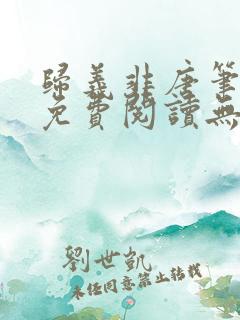 歸義非唐筆
免費閱讀無
劉世凱
未經同意禁止轉載